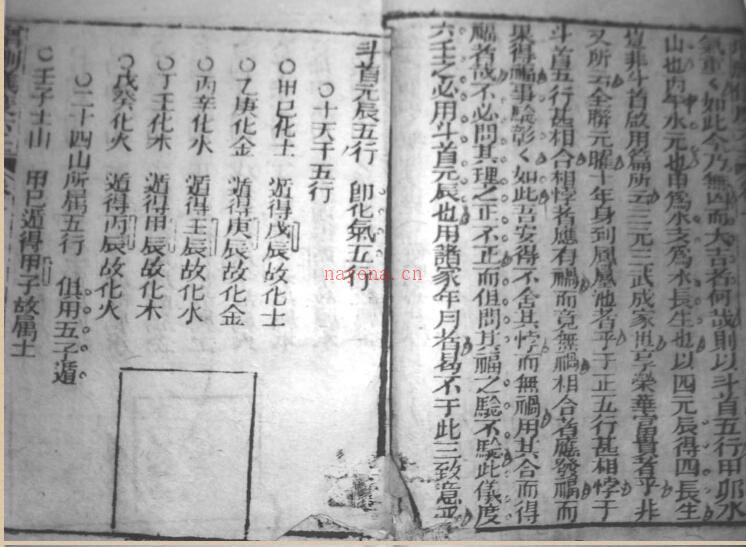 氣重〻如此今乃無因而大吉者何哉則以斗首五行甲卯水
山也丙年水元也申爲水爻爲水長生也以四元辰得四長生
豈非斗首啟用篇所云三元三武成家世享榮華富貴者乎非
又所云全勝元曜十年身到鳳凰池者乎于正五行甚相悖于
斗首五行甚相合相悖者應有禍而竟無禍相合者應發福而
果得福事驗彰〻如此吾安得不舍其悖而無禍用其合而得
福者哉不必問其理之正不正而但問其福之驗不驗此儀度
六壬之必用斗首元辰也用諸家年月者曷不于此三致意乎
斗首元辰五行 卽化氣五行
○十天干五行
○甲巳化土 遁得戊辰故化土
○乙庚化金 遁得庚辰故化金
○丙辛化水 遁得壬辰故化水
○丁壬化木 遁得甲辰故化木
○戊癸化火 遁得丙辰故化火
○二十四山所屬五行 俱用五子遁
○壬子土山 甲巳遁得甲子故屬土
nayona.cn